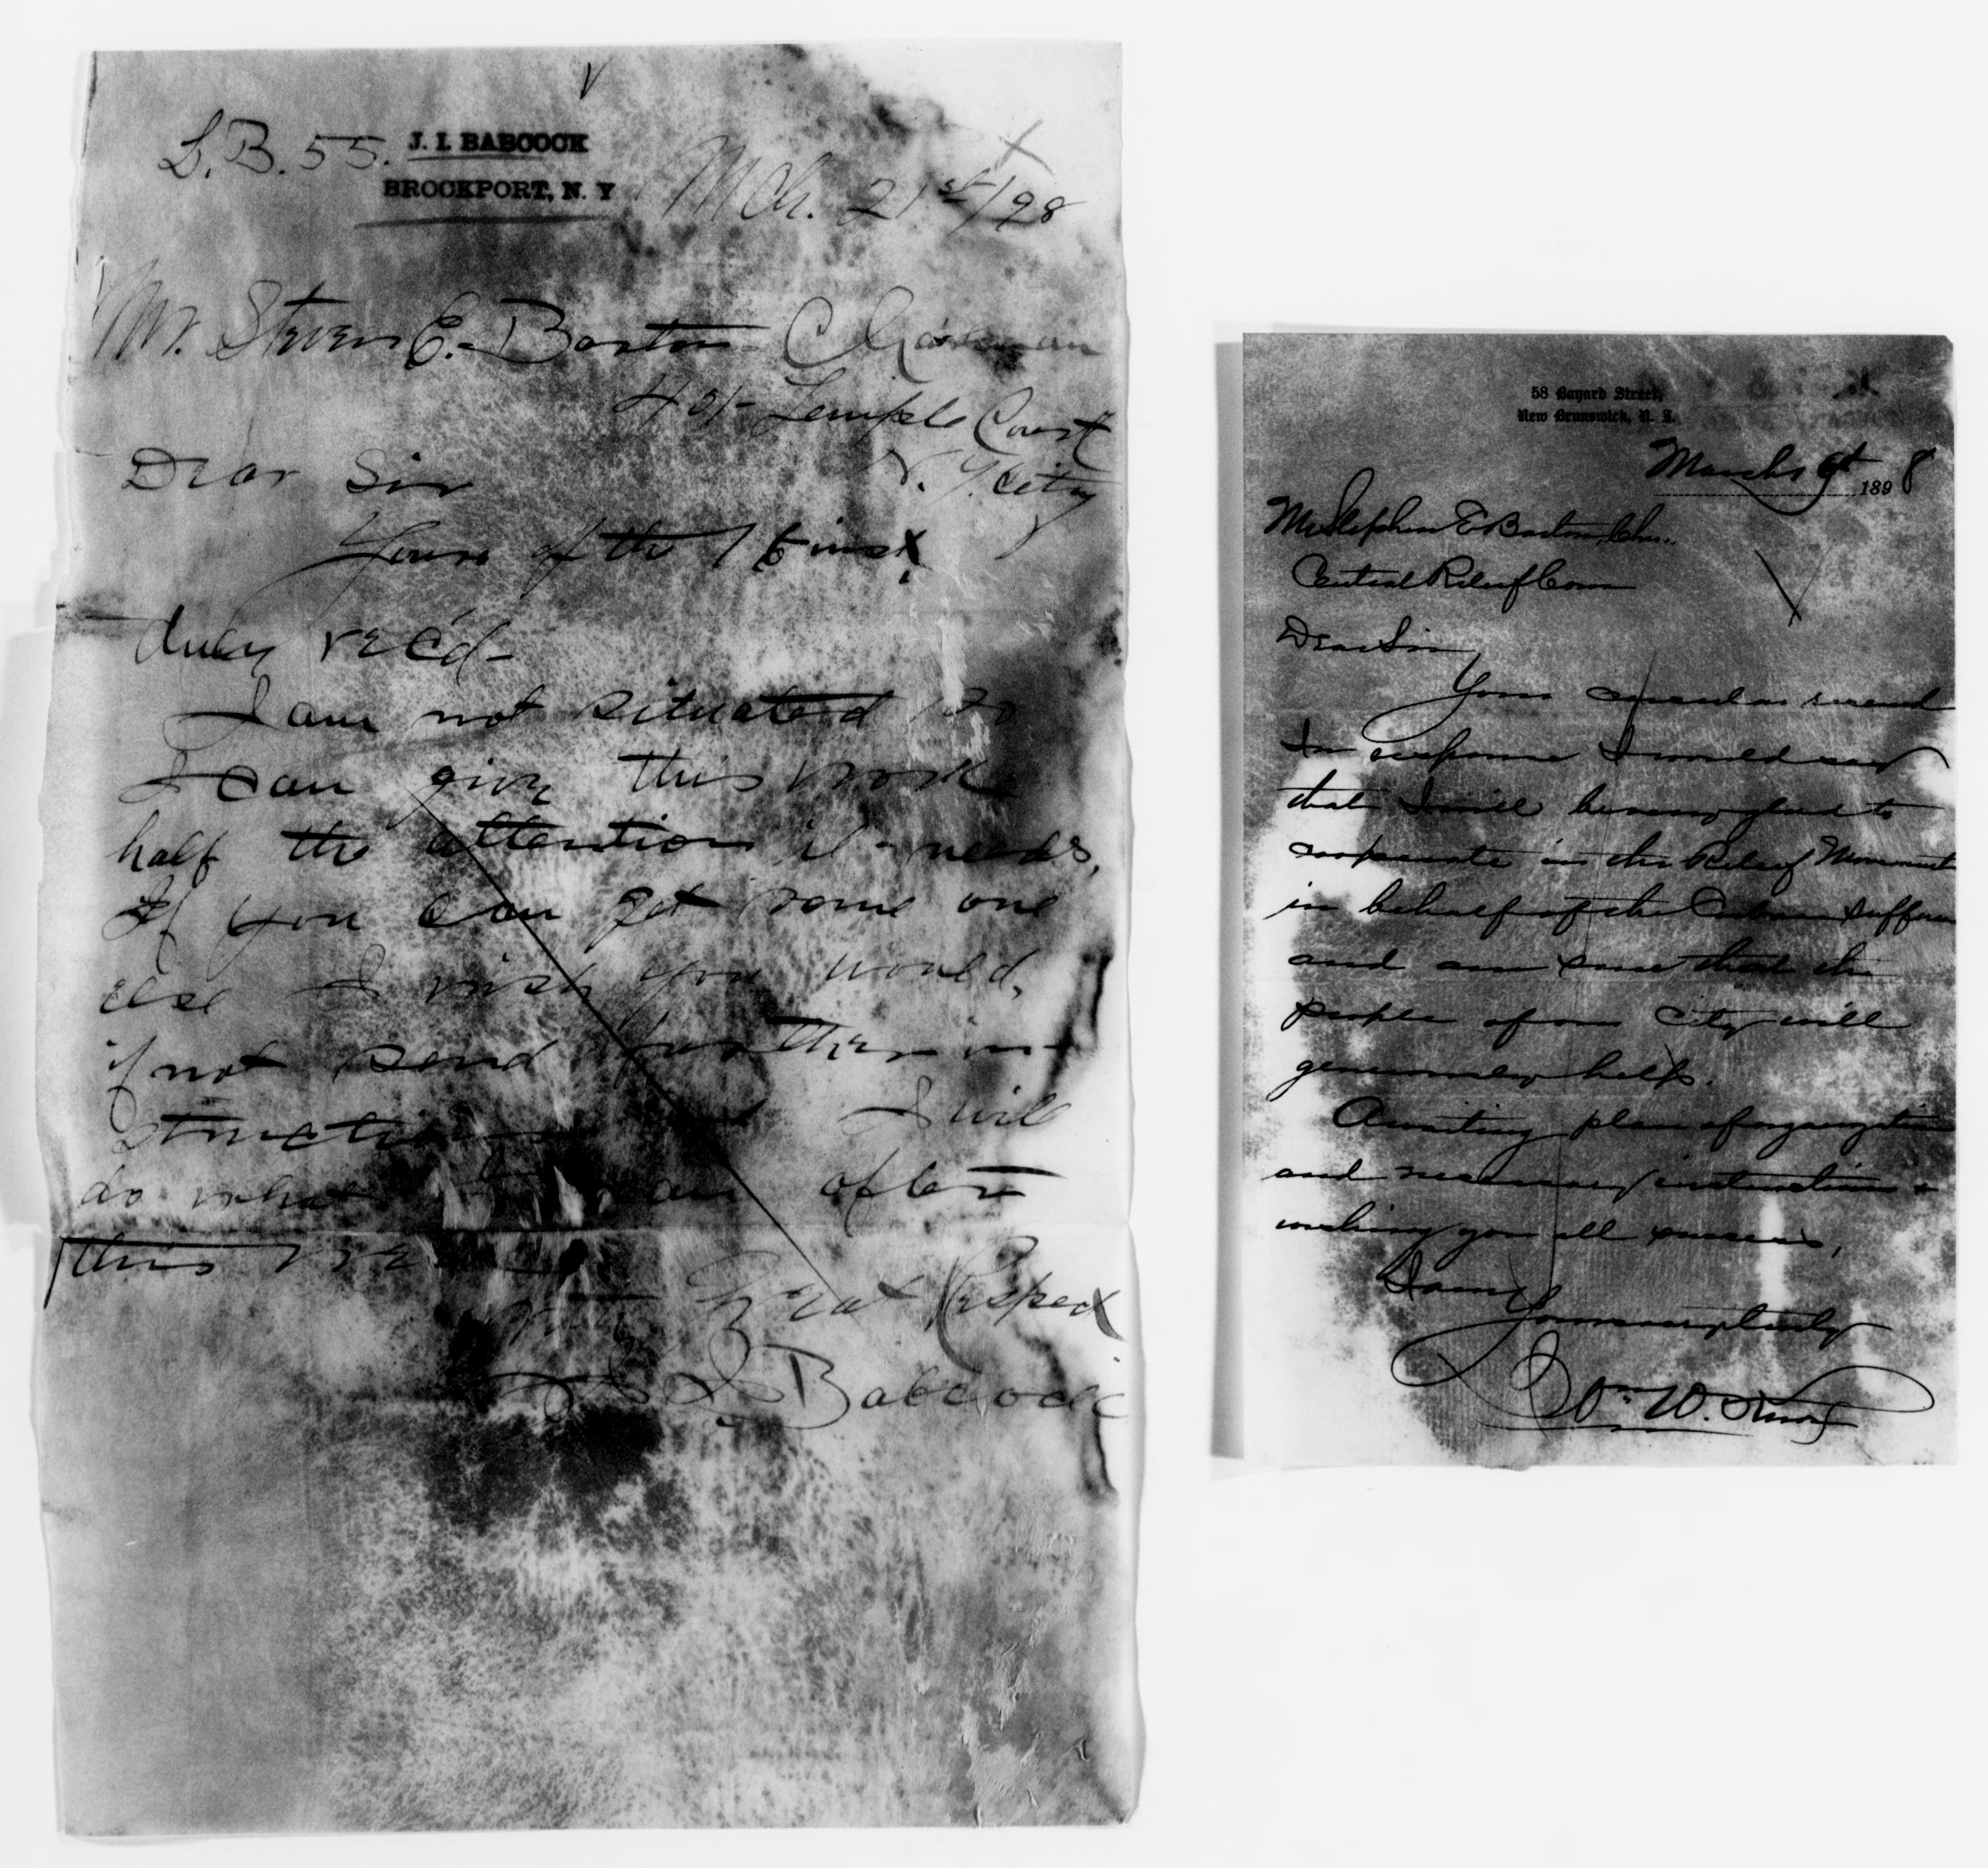 L.B. 55. J. I. BABCOCK
BROCKPORT, N. Y
Mch. 21st/98
Mr. Steven E. Barton Chairman
401 Temple Court
N.Y. City
Dear Sir
Yours of the 16 inst
duly rec'd-
I am not situated so
I can give this work
half the attention it needs,
If you can get some one
else I wish you would,
if not send further in-
structions I will
do what I can after
this
Great Respect
J I Babcock
58 Bayard Street,
New Brunswick, N. J.
March 9th 1898
Mr Stephen E Barton, Chn.
Central Relief Com
Dear Sir
Your circular received
In response I would say
that I will be very glad to
cooperate in the Relief Movement
in behalf of the Cuban Sufferers
and am sure that the
people of our City will
generously help.
Awaiting plan of organization
and necessary instructions &
wishing you all success,
I am
Yours very truly
Wm W.